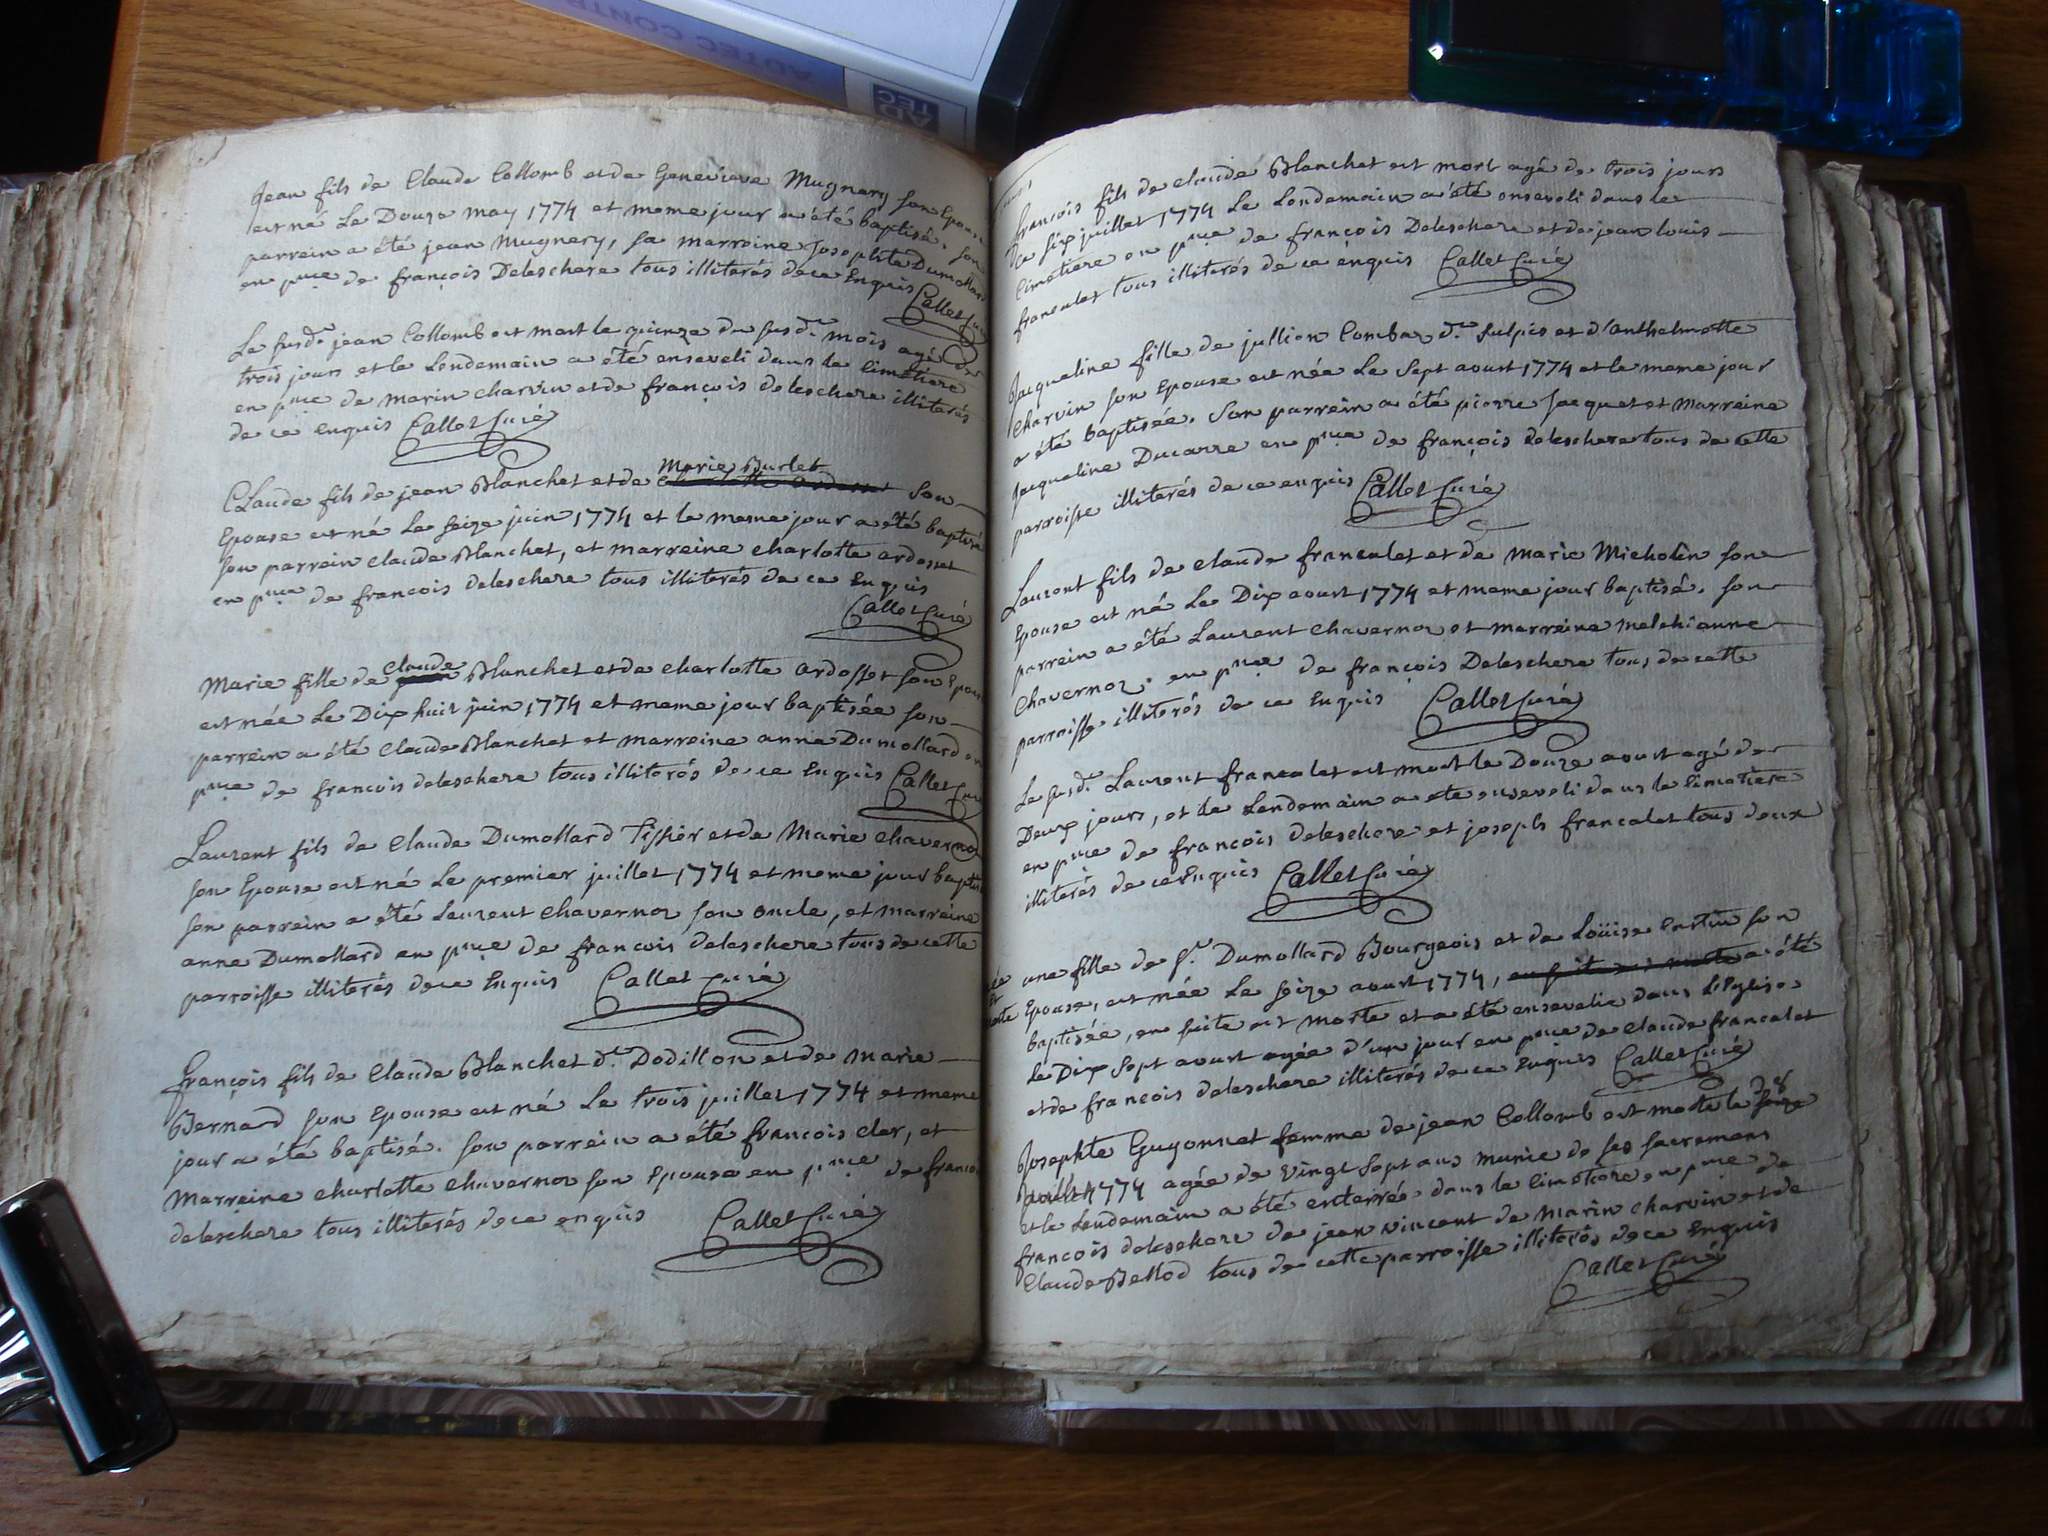 Jean fils de Claude Collomb et de Genevieve Mugnery son Epouse
est né Le Douze may 1774 et meme jour a été baptisé. Son
parrein a été jean Mugnery, sa marreine Josephte Dumollard
en pnce de françois Deleschere tous illiterés de ce Enquis
Callet Curé
Le susdt jean Collomb est mort le quinze du susdt mois agé de
trois jours et le Lendemain a été enseveli dans le Cimetiere
en pnce de marin charvin et de françois deleschere illiterés
de ce Enquis Callet Curé
Marie Burlet
CLaude fils de jean Blanchet et de charlotte ardosset son
Epouse est né Le seize juin 1774 et le meme jour a été baptisé
son parrein claude Blanchet, et marreine charlotte ardosset
en pnce de francois deleschere tous illiterés de ce Enquis
Callet Curé
claude
Marie fille de Blanchet et de charlotte ardosset son Epouse
est née Le Dix huit juin 1774 et meme jour baptisée son
parrein a été Claude Blanchet et marreine anne Dumollard en
pnce de francois deleschere tous illiterés de ce Enquis Callet Curé
Laurent fils de Claude Dumollard Tissier et de Marie chavernoz
son Epouse est né Le premier juillet 1774 et meme jour baptisé
son parrein a été Laurent chavernoz son oncle, et marreine
anne Dumollard en pnce de francois deleschere tous de cette
parroisse illiterés de ce Enquis Callet Curé
françois fils de Claude Blanchet dt Dodillon et de marie
Bernard son Epouse est né Le trois juillet 1774 et meme
jour a été baptisé. son parrein a été françois cler, et
Marreine charlotte chavernoz son Epouse en pnce de francois
deleschere tous illiterés de ce enquis Callet Curé
francois fils de claude Blanchet est mort agé de trois jours
Le six juillet 1774 Le Lendemain a été enseveli dans le
Cimetiere en pnce de françois Deleschere et de jean louis
francalet tous illiterés de ce enquis Callet Curé
Jacqueline fille de jullien Combaz dt Sulpis et d'anthelmette
charvin son Epouse est née Le sept aoust 1774 et le meme jour
a été baptisée. Son parrein a été pierre Jacquet et Marreine
Jacqueline Ducarre en pnce de françois deleschere tous de cette
parroisse illiterés de ce enquis Callet Curé
Laurent fils de claude francalet et de marie Micholin son
Epouse est né Le Dix aoust 1774 et meme jour baptisé. son
parrein a été Laurent chavernoz et marreine melchianne
Chavernoz. en pnce de françois Deleschere tous de cette
parroisse illiterés de ce Enquis Callet Curé
Le susdt Laurent francalet est mort le Douze aoust agé de
Deux jours, et le Lendemain a été enseveli dans le Cimetiere
en pnce de françois deleschere et joseph francalet tous deux
illiterés de ce Enquis Callet Curé
une fille de Sr Dumollard Bourgeois et de Loüise son
Epouse, est née Le seize aoust 1774, a été
baptisée, en suite est morte et a été ensevelie dans L'Eglise
Le Dix sept aoust agée d'un jour en pnce de claude francalet
et de francois deleschere illiterés de ce Enquis Callet Curé
Josephte Guyonnet femme de jean Collomb est morte le
1774 agée de vingt sept ans munie de ses sacremens
et le Lendemain a été enterrée dans le Cimetiere en pnce de
francois deleschere de jean vincent de marin charvin et de
Claude Bellod tous de cette parroisse illiterés de ce Enquis
Callet Curé
AD
TEC